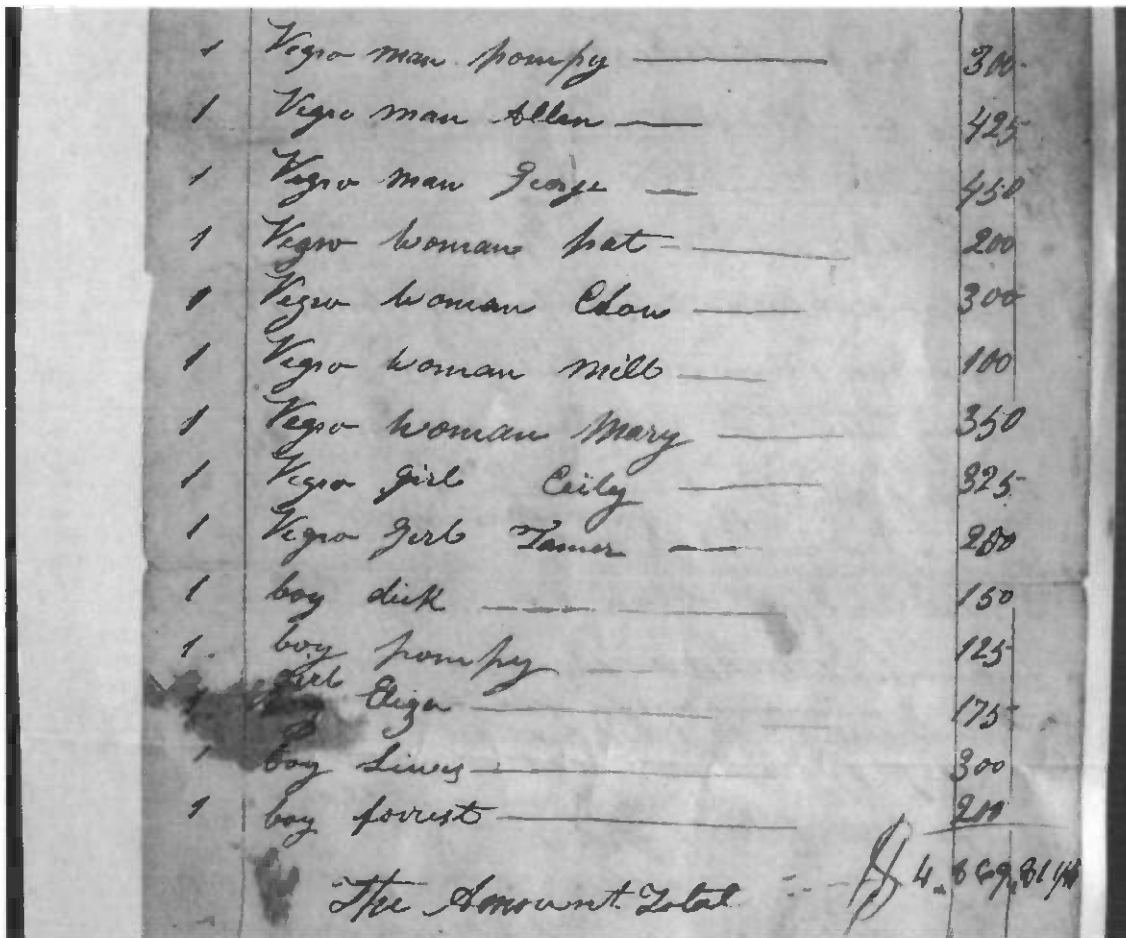 1 Negro man pompy 300
1 Negro man Allen 425
1 Negro man George 450
1 Negro woman pat 200
1 Negro woman Chow 300
1 Negro woman Mill 100
1 Negro woman Mary 350
1 Negro girl Ceily 325
1 Negro Girl Tamer 200
1 boy dick 150
1. boy pompy 125
girl
1 Eliza 175
1 boy 300
1 boy forrest 200
The Amount Total $4